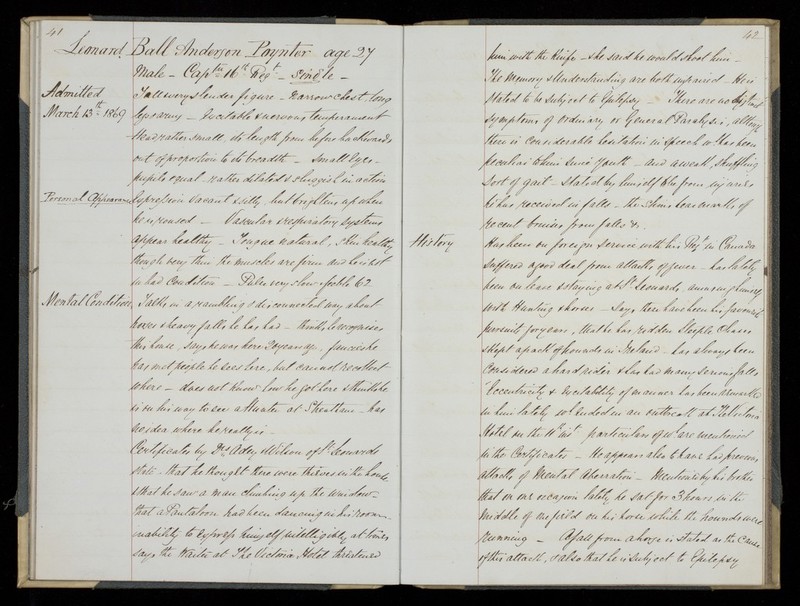 41
Leonard Ball Anderson Poynter age 27
Male - Captn 16th Regt - Single -
Admitted
March 13th 1869
Tall & very slender figure - narrow chest, long
legs & army - Excitable & nervous temperament
Head rather small, its length from before backwards
out of proportion to its breadth - Small Eyes -
pupils equal - rather dilated & sluggish in action
Personal Appearance
Expression vacant & silly but brightens up when
he is roused - Vascular & respiratory systems
appear healthy - Tongue natural, skin healthy
though very thin the muscles are firm and he is not
in bad condition - Pulse very slow & feeble 62
Mental Condition
Talks in a rambling & disconnected way about
horses & heavy falls he has had - thinks he recognises
this house, says he was here 20 years ago, fancies he
has met people he sees here, but cannot recollect
where - does not know how he got here & thinks he
is on his way to see a Hunter at Streatham - has
no idea where he really is -
Certificates by Drs Adey & Wilson of St Leonards
state - that he thought there were thieves in the house
& that he saw a man climbing up the window -
that a Pantaloon had been dancing in his room -
inability to express himself intelligibly at times
says the Waiter at The Victoria Hotel threatened
42
him with the Knife - she said he would shoot him -
The Memory & Understanding are both impaired - He is
stated to be subject to Epilepsy - There are no distinct
symptoms of ordinary or General Paralysis, although
there is considerable hesitation in Speech wh has been
peculiar to him since youth - and a weak, shuffling
sort of gait - stated by himself to be from injuries
he has received in falls - the shins bear marks of
recent bruises from falls &c
History
Has been on foreign service with his Regt in Canada
suffered a good deal from attacks of fever - has lately
been on leave & staying at St Leonards, amusing himself
with Hunting & horses - Says these have been his favourite
pursuits for years, that he has ridden Steeple Chases
& kept a pack of hounds in Ireland - has always been
considered a hard rider & has had many serious falls
Eccentricity & Excitability of manner has been remarked
in him lately wh ended in an outbreak at
Hotel on the 11th inst particulars of wh are mentioned
in the Certificates - He appears also to have had previous
attacks of Mental Aberration - Mentioned by his brother
that on one occasion lately he sat for 3 hours in the
middle of a field on his horse while the hounds were
running - A fall from a horse is stated as the cause
of this attack, & also that he is subject to Epilepsy